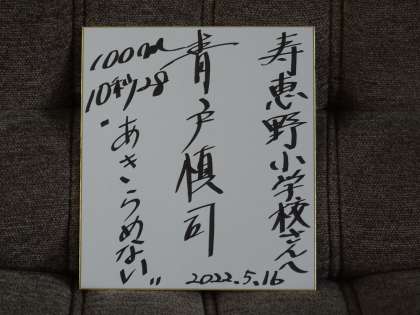 寿恵野小学校さんへ
青戸慎司
100m
10秒28
"あきらめない"
2022.5.16